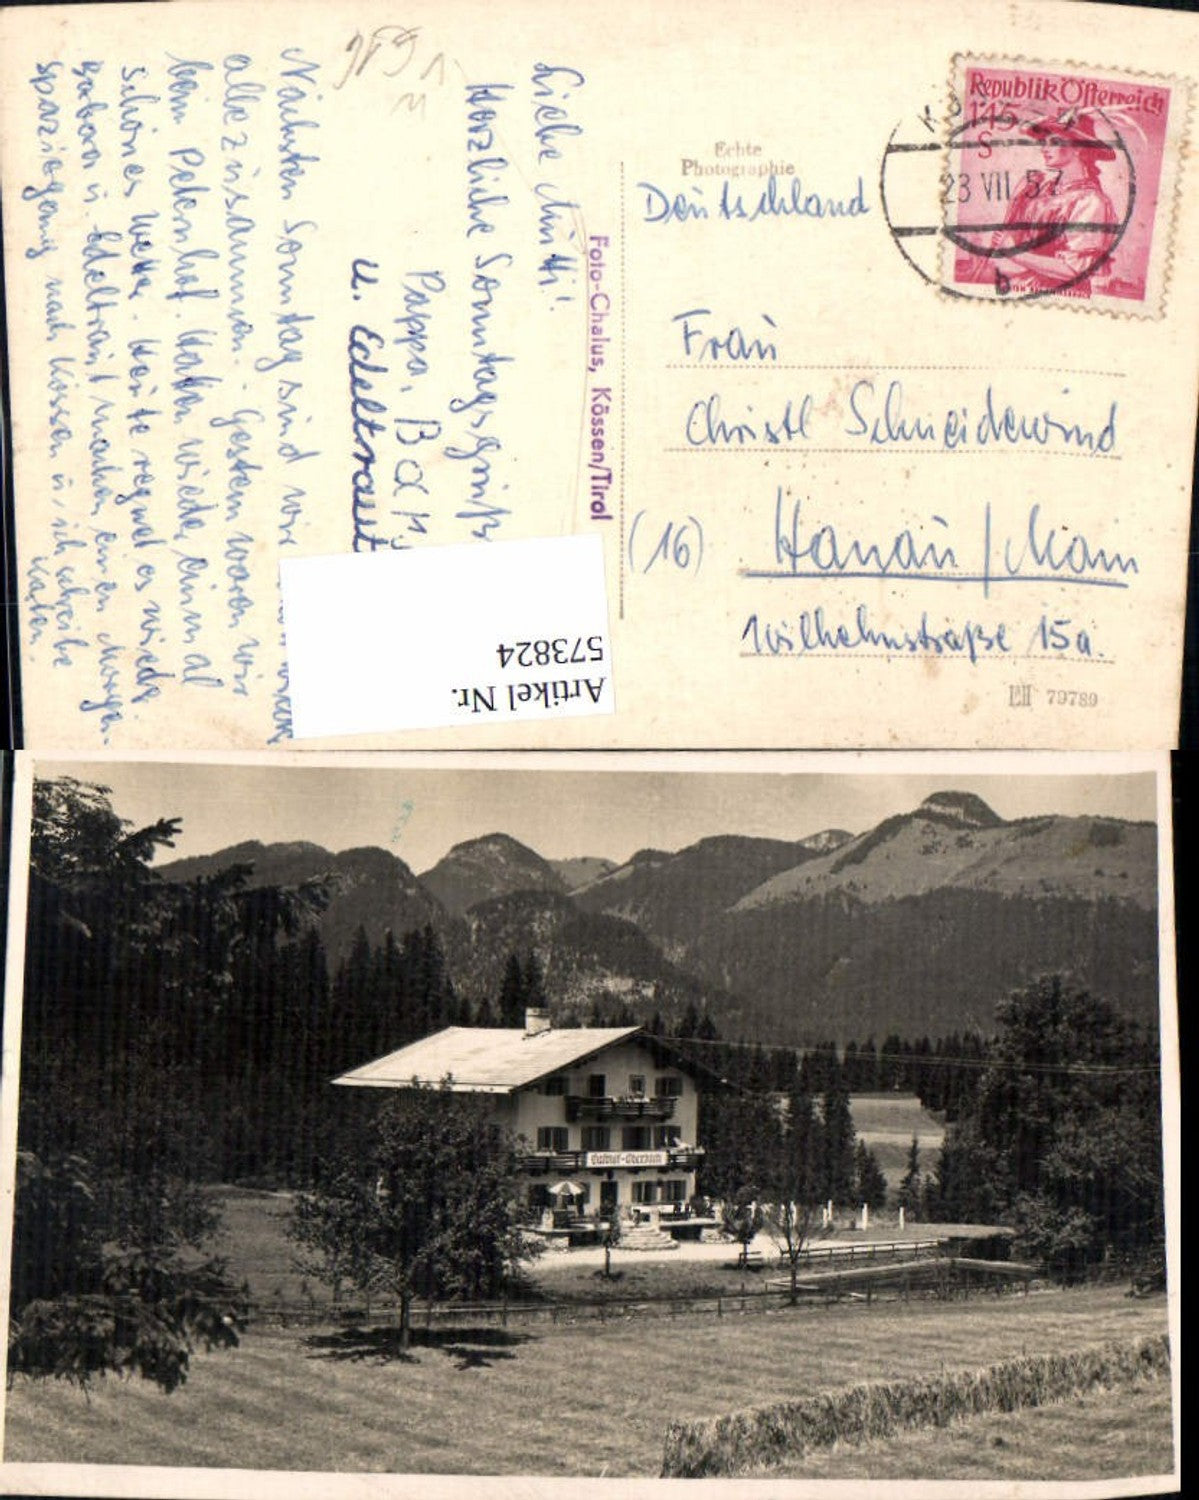 Liebe Mutti!
Herzliche Sonntagsgrüße
Pappa, Bar
u. Edeltraut
Nächsten Sonntag sind wir
alle zusammen. Gestern waren wir
beim Peternhof. Hatten wieder einmal
schönes Wetter. Heute regnet es wieder
u. Edeltraut machen einen Morgen-
spaziergang nach Kössen u. ich schreibe
Karten.
Foto-Chalus, Kössen/Tirol
Echte
Photographie
Republik Österreich
1.45
S
23 VII 57
b
Deutschland
Frau
Christl Schneidewind
(16) Hanau/Main
Wilhelmstraße 15a.
79789
Artikel Nr.
573824